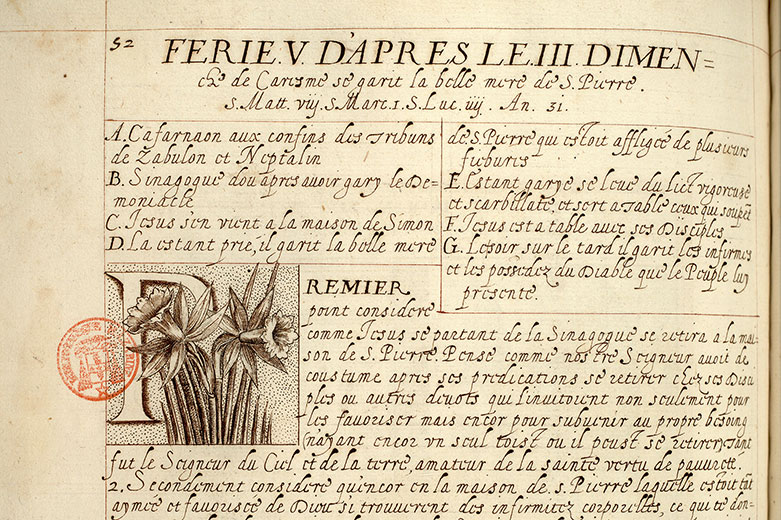 52
FERIE.V. D'APRES LE.III. DIMEN=
che de Caresme se garit la belle mere de S. Pierre.
S. Matt. viij. S. Marc. 1. S. Luc. iiij. An. 31.
A. Cafarnaon aux confins des Tribuns
de Zabulon et Neptalin
B. Sinagogue dou apres auoir gary le De=
moniacle
C. Iesus s'en vient a la maison de Simon
D. La estant prie, il garit la belle mere
de S. Pierre qui estoit affligée de plusieurs
fieburес
E. Estant garye se leue du lict vigoreuse
et scarbillate, et sert a Table ceux qui soupẽt
F. Iesus est a table auec ses Disciples
G. Le soir sur le tard il garit les infirmes
et les possedez du Diable que le Peuple luy
presente.
PREMIER
point considere
comme Iesus se partant de la Sinagogue se retira a la mai
son de S. Pierre. Pense comme nostre Seigneur auoit de
coustume apres ses predications se retirer chez ses Disci
ples ou autres deuots qui l'inuitoient non seulement pour
les fauoriser mais encor pour subuenir au propre besoing
(n'ayant encor vn seul toist ou il peust se retirer) Tant
fut le Seigneur du Ciel et de la terre, amateur de la sainte vertu de pauureté.
2. Secondement considere qu'encor en la maison de S. Pierre laquelle estoit tãt
aymee et fauorisee de Dieu si trouuerent des infirmitez corporelles, ce qui te don=